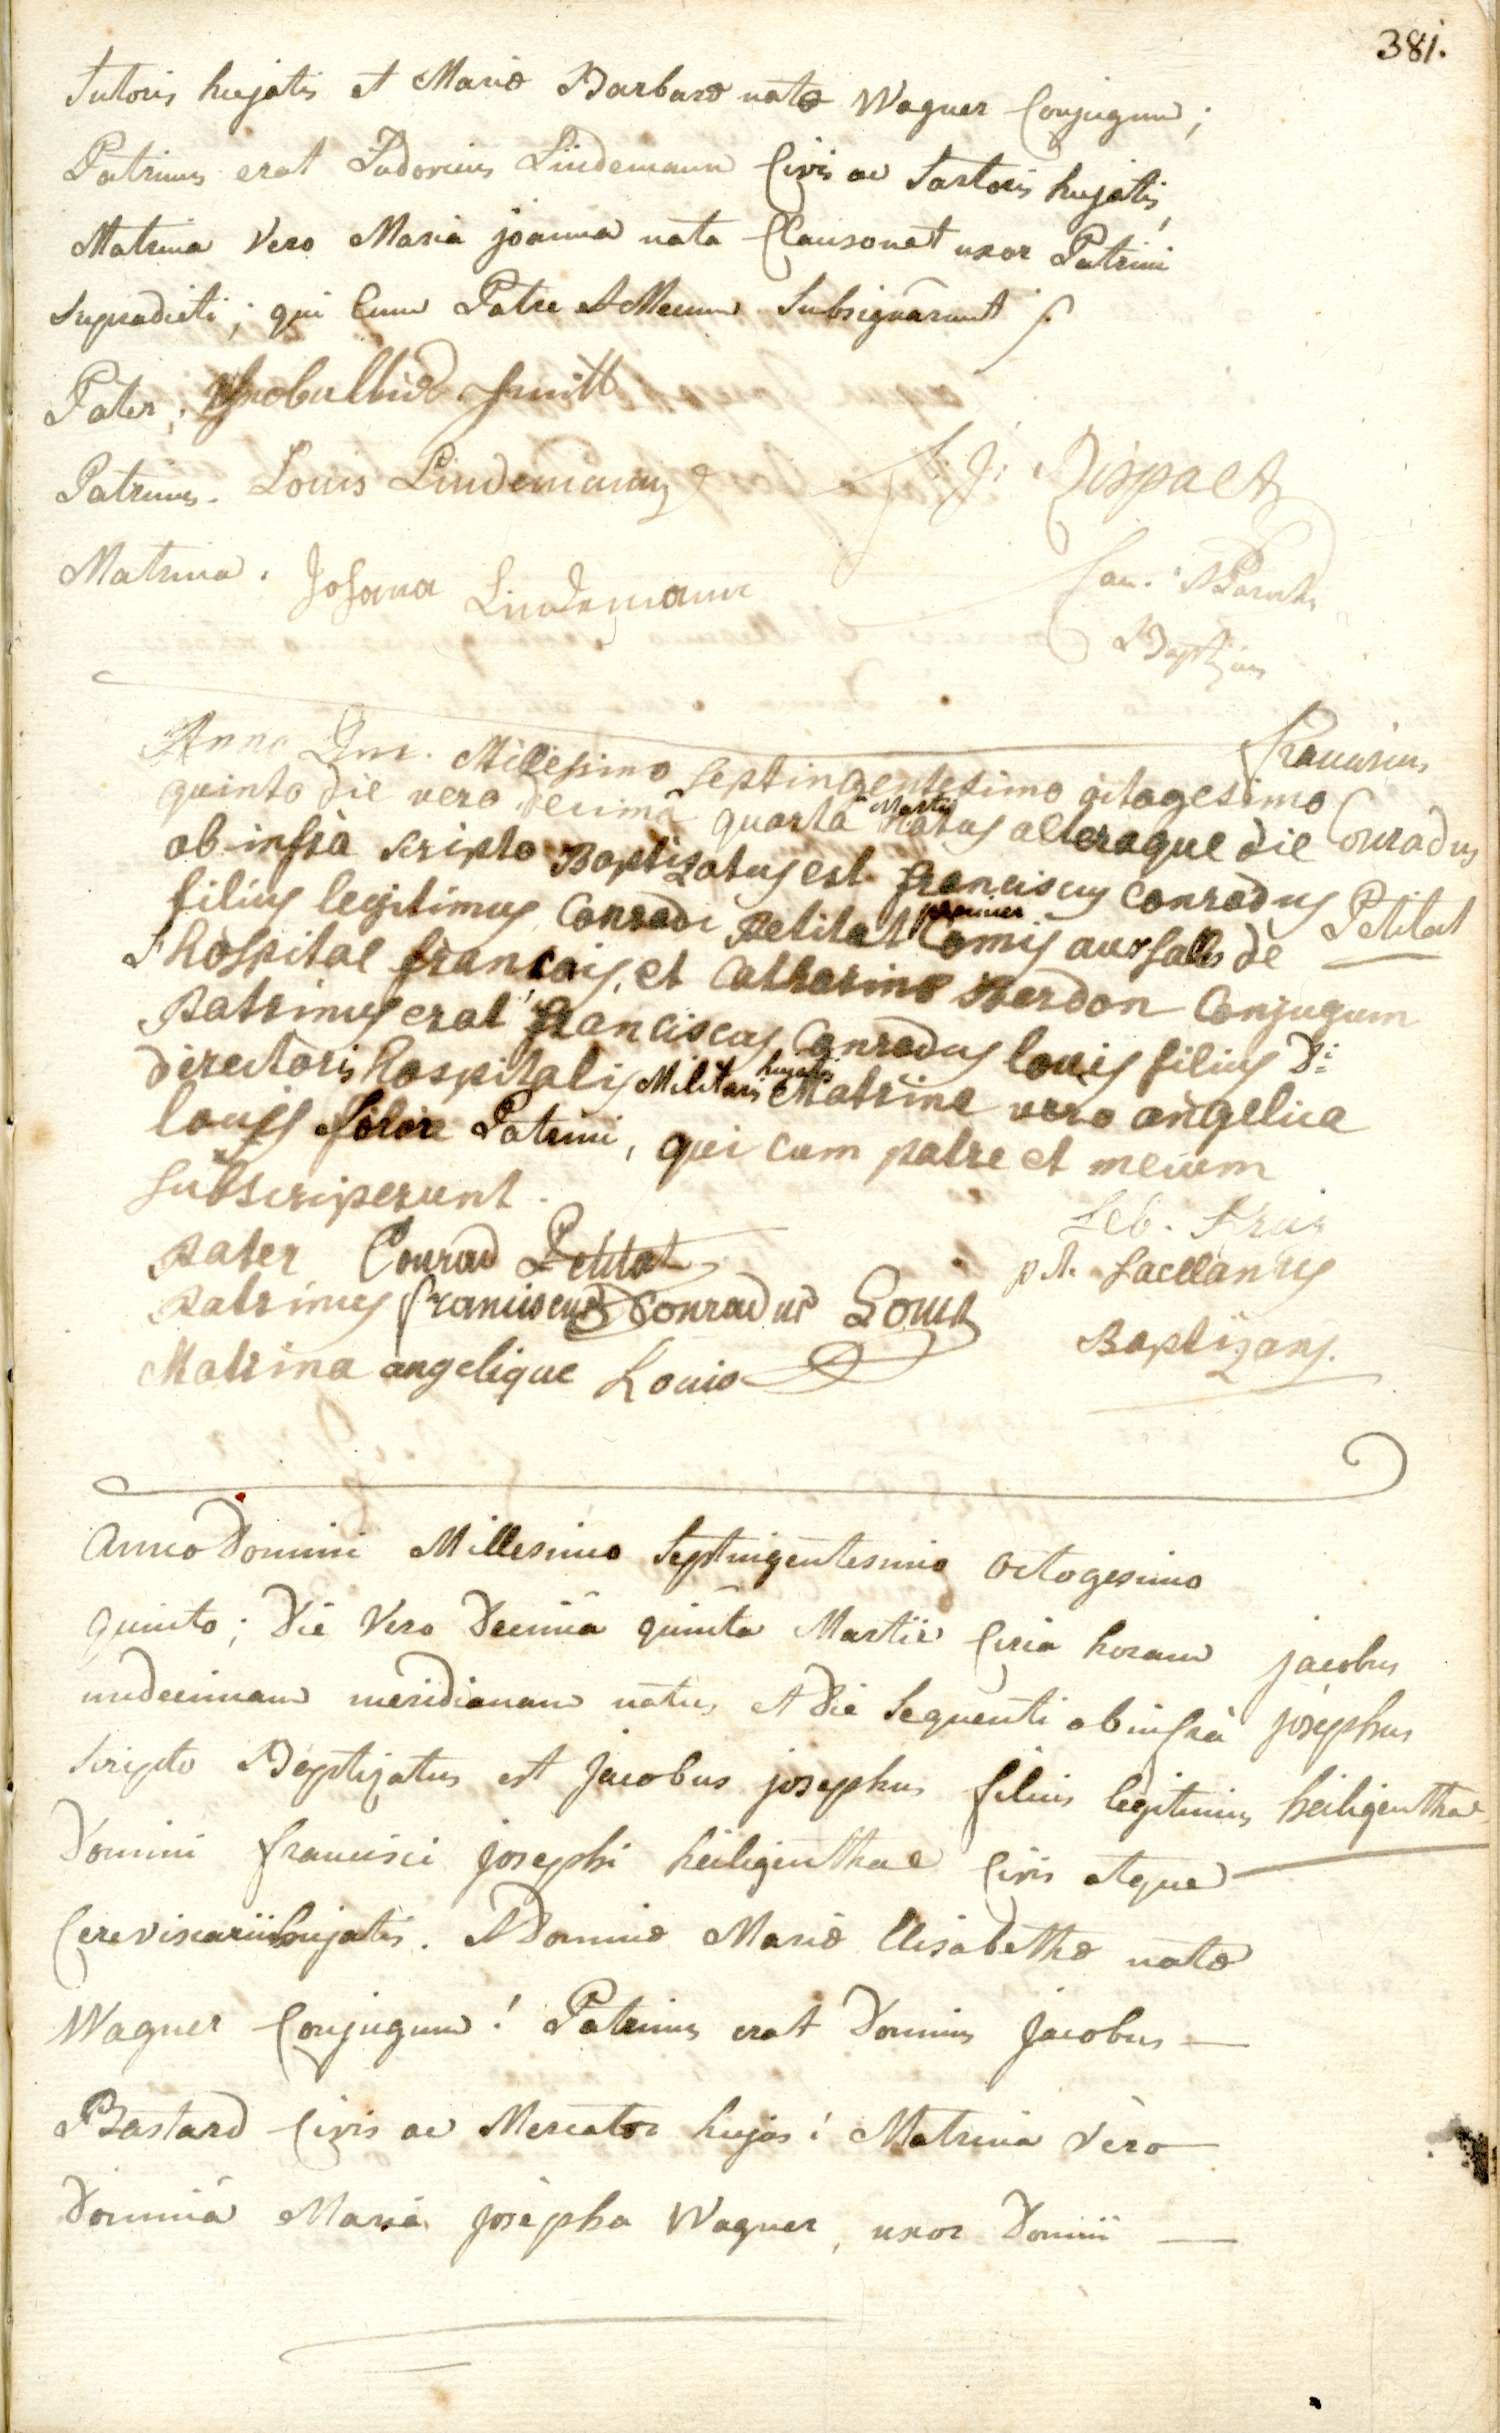 381.
Sutoris hujatis et Mariæ Barbaræ natæ Wagner Conjugum;
Patrinus erat Ludovicus Lindemann Civis ac Sartoris hujatis,
Matrina Vero Maria joanna nata Clausonet uxor Patrini
supradicti; qui Cum Patre et Mecum Subsignârunt
Pater, Schmitt
Patrinus. Louis Lindemann J: J: Dispaet
Matrina. Johana Lindemann Can. et Paroch:
Baptizans
Anno Dni. Millesimo septingentesimo octogesimo Franciscus
quinto die vero decimâ quartâ Martii Natus alteraque die Conradus
ab infrà scripto Baptizatus est franciscus conradus Petitat
filius legitimus Conradi Petitat premier Comis aux salls de
l'hospital français, et Catharinæ Berdon Conjugum
Patrinus erat franciscus Conradus louis filius D:i
directoris hospitalis Militaris hujatis Matrina vero angelica
louis soror Patrini, qui cum patre et mecum
subscripserunt.
Seb.
Pater Conrad Petitat p.t. sacellanus
Patrinus franciscus Conradus Louis
Baptizans.
Matrina angelique Louis
Anno Domini Millesimo Septingentesimo octogesimo
quinto; Die Vero Decimâ quintâ Martii Circa horam jacobus
undecimam meridianam natus et die sequenti ab infrà josephus
scripto Baptizatus est Jacobus josephus filius legitimus heiligenthal
Domini francisci josephi heiligenthal Civis atque
Cerevisiarii hujatis. et Dominæ Mariæ Elisabethæ natæ
Wagner Conjugum! Patrinus erat Dominus Jacobus
Bastard Civis ac Mercator hujas! Matrina Vero
Domina Maria Josepha Wagner, uxor Domini